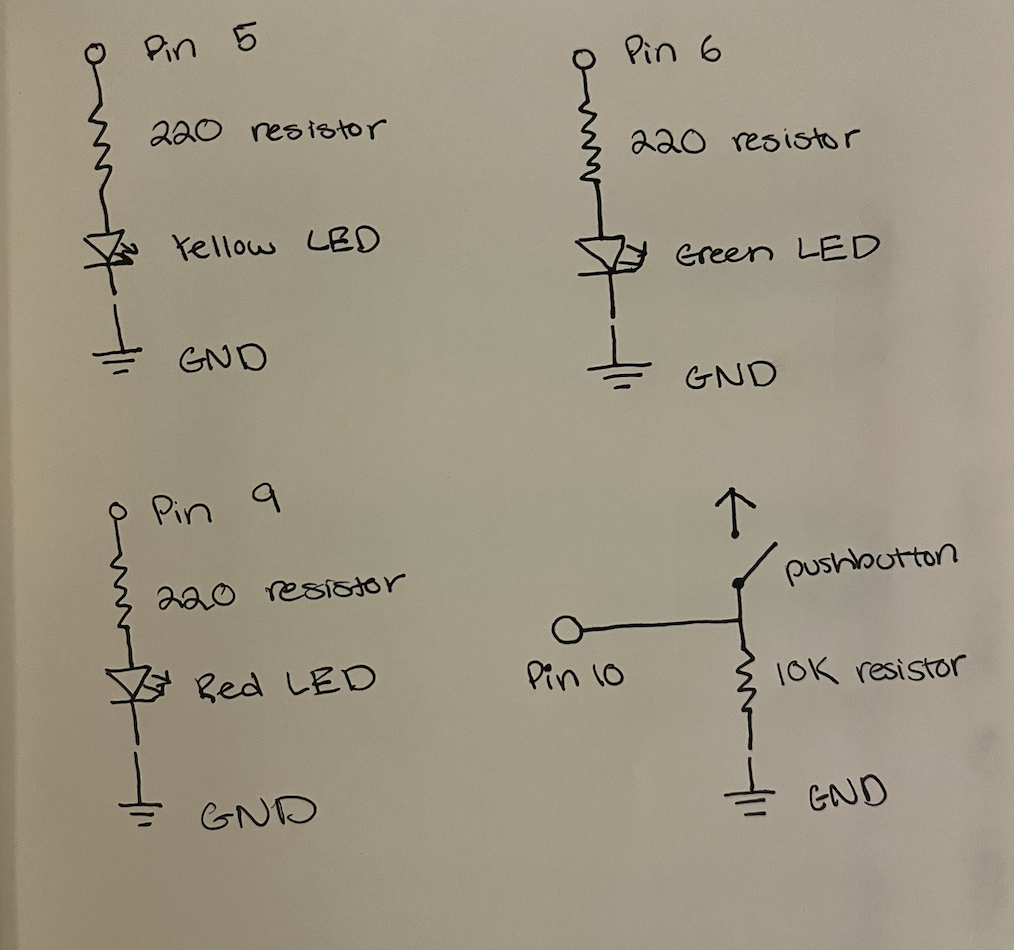 Pin 5
220 resistor
Yellow LED
GND
Pin 6
220 resistor
Green LED
GND
Pin 9
220 resistor
Red LED
GND
pushbutton
Pin 10
10K resistor
GND